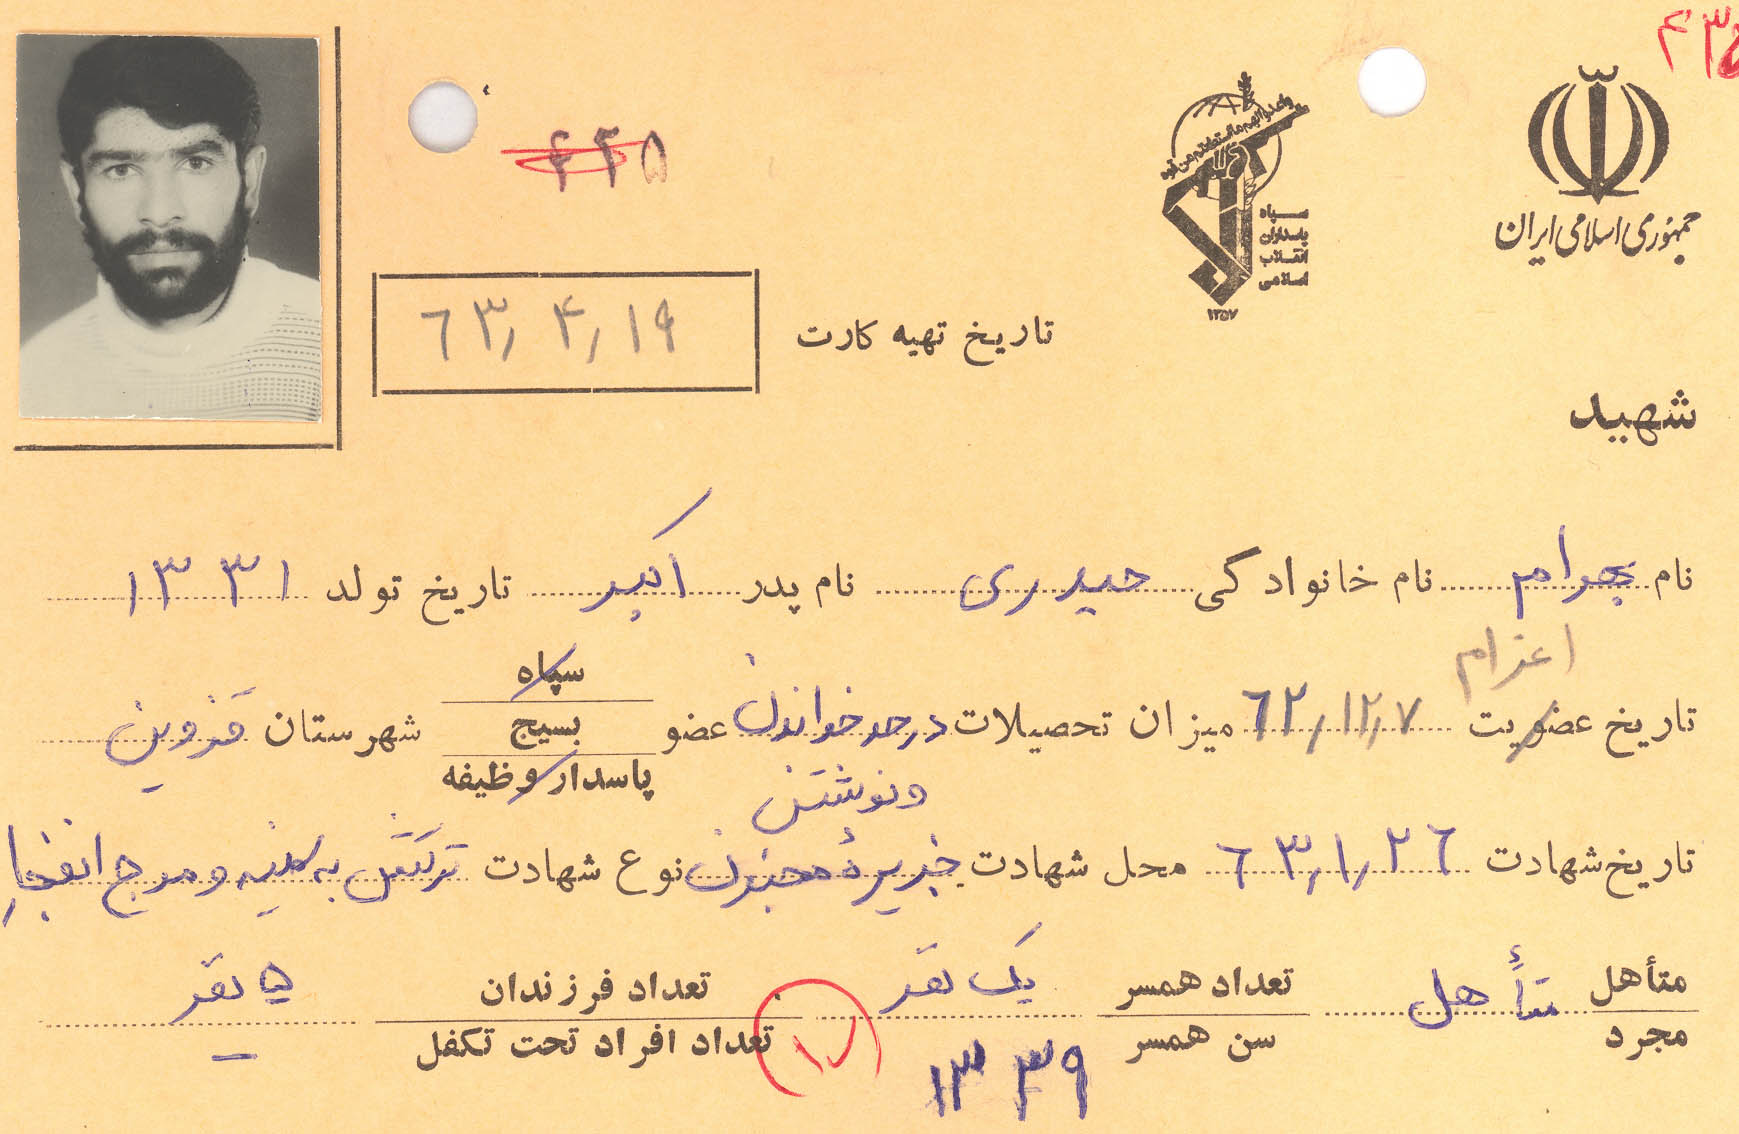 ۴۳۵
جمهوری اسلامی ایران
سپاه
پاسداران
انقلاب
اسلامی
۱۳۵۷
۴۳۵
تاریخ تهیه کارت ۶۳٫۴٫۱۹
شهید
نام بهرام نام خانوادگی حیدری نام پدر اکبر تاریخ تولد ۱۳۳۱
اعزام
تاریخ عضویت ۶۲٫۱۲٫۷ میزان تحصیلات در حد خواندن و نوشتن عضو سپاه بسیج پاسدار وظیفه شهرستان قزوین
تاریخ شهادت ۶۳٫۱٫۲۶ محل شهادت جزیرهٔ مجنون نوع شهادت ترکش به سینه و موج انفجار
متأهل متأهل تعداد همسر یک نفر تعداد فرزندان ۵ نفر
مجرد سن همسر ۱۳۳۹ ۱۷ تعداد افراد تحت تکفل –